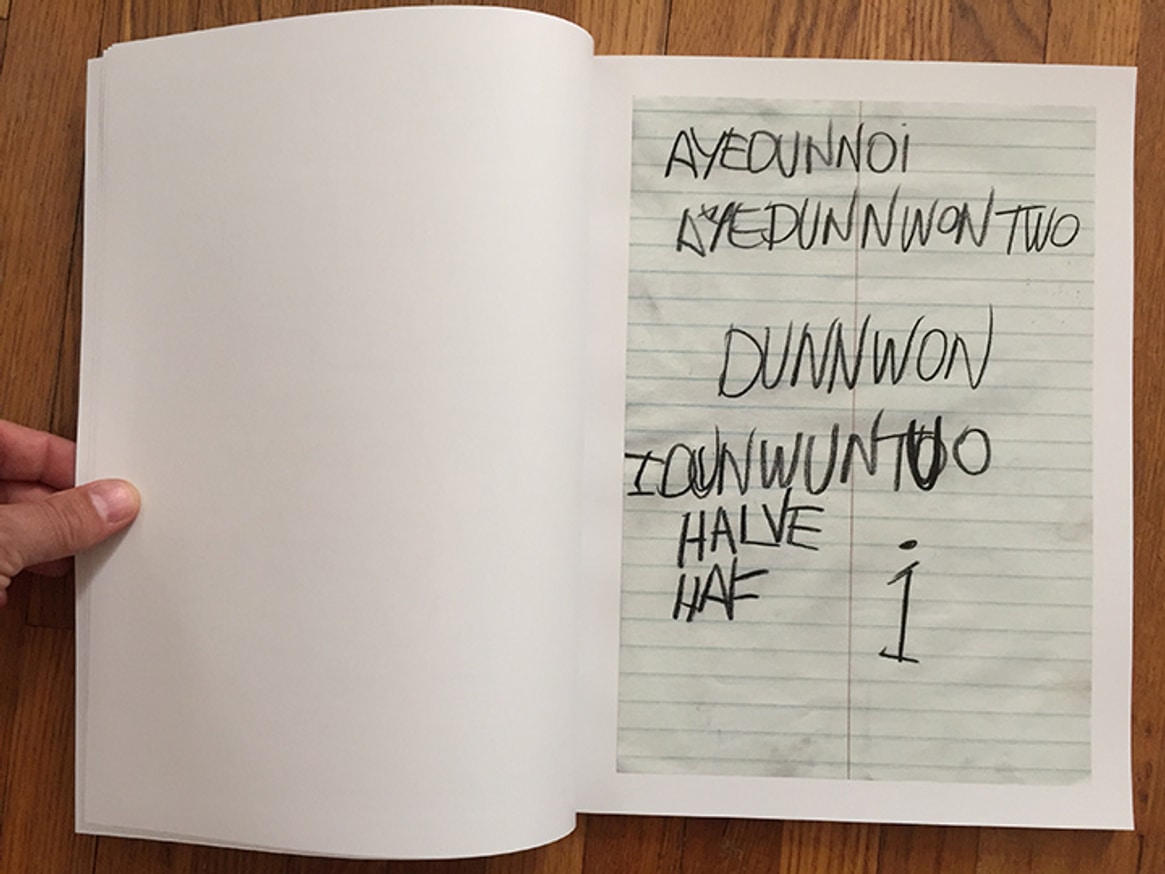 AYEDUNNOi
AYEDUNNWONTWO
DUNNWON
IDUNWUNTUO
HALVE
HAF
i